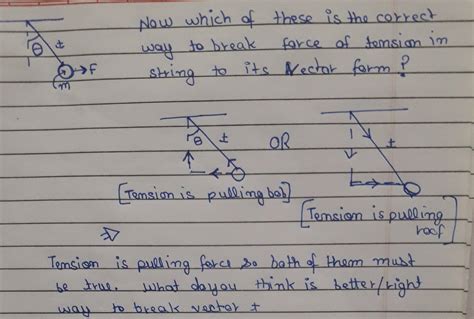 Now which of these is the correct
way to break force of tension in
string to its Vector form?
θ
t
F
m
θ
t
OR
t
[Tension is pulling bob]
[Tension is pulling
roof]
⇒
Tension is pulling force so both of them must
be true. What do you think is better/right
way to break vector t